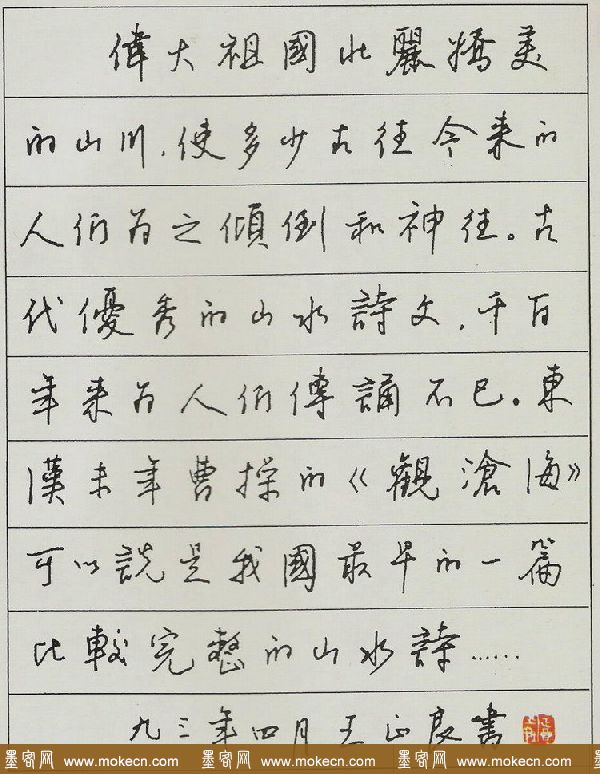 偉大祖國壯麗嬌美
的山川，使多少古往今来的
人们为之傾倒和神往。古
代優秀的山水詩文，千百
年来为人们傳誦不已。東
漢末年曹操的《觀滄海》
可以説是我國最早的一篇
比較完整的山水詩……
九三年四月王正良書
墨客网 www.mokecn.com 墨客网 www.mokecn.com 墨客网 www.mokecn.com